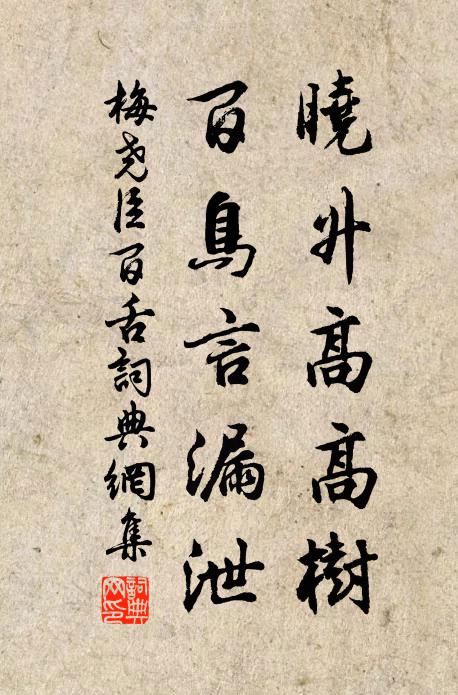 曉升高高樹
百鳥言漏泄
梅堯臣百舌詞典網集
詞典網印